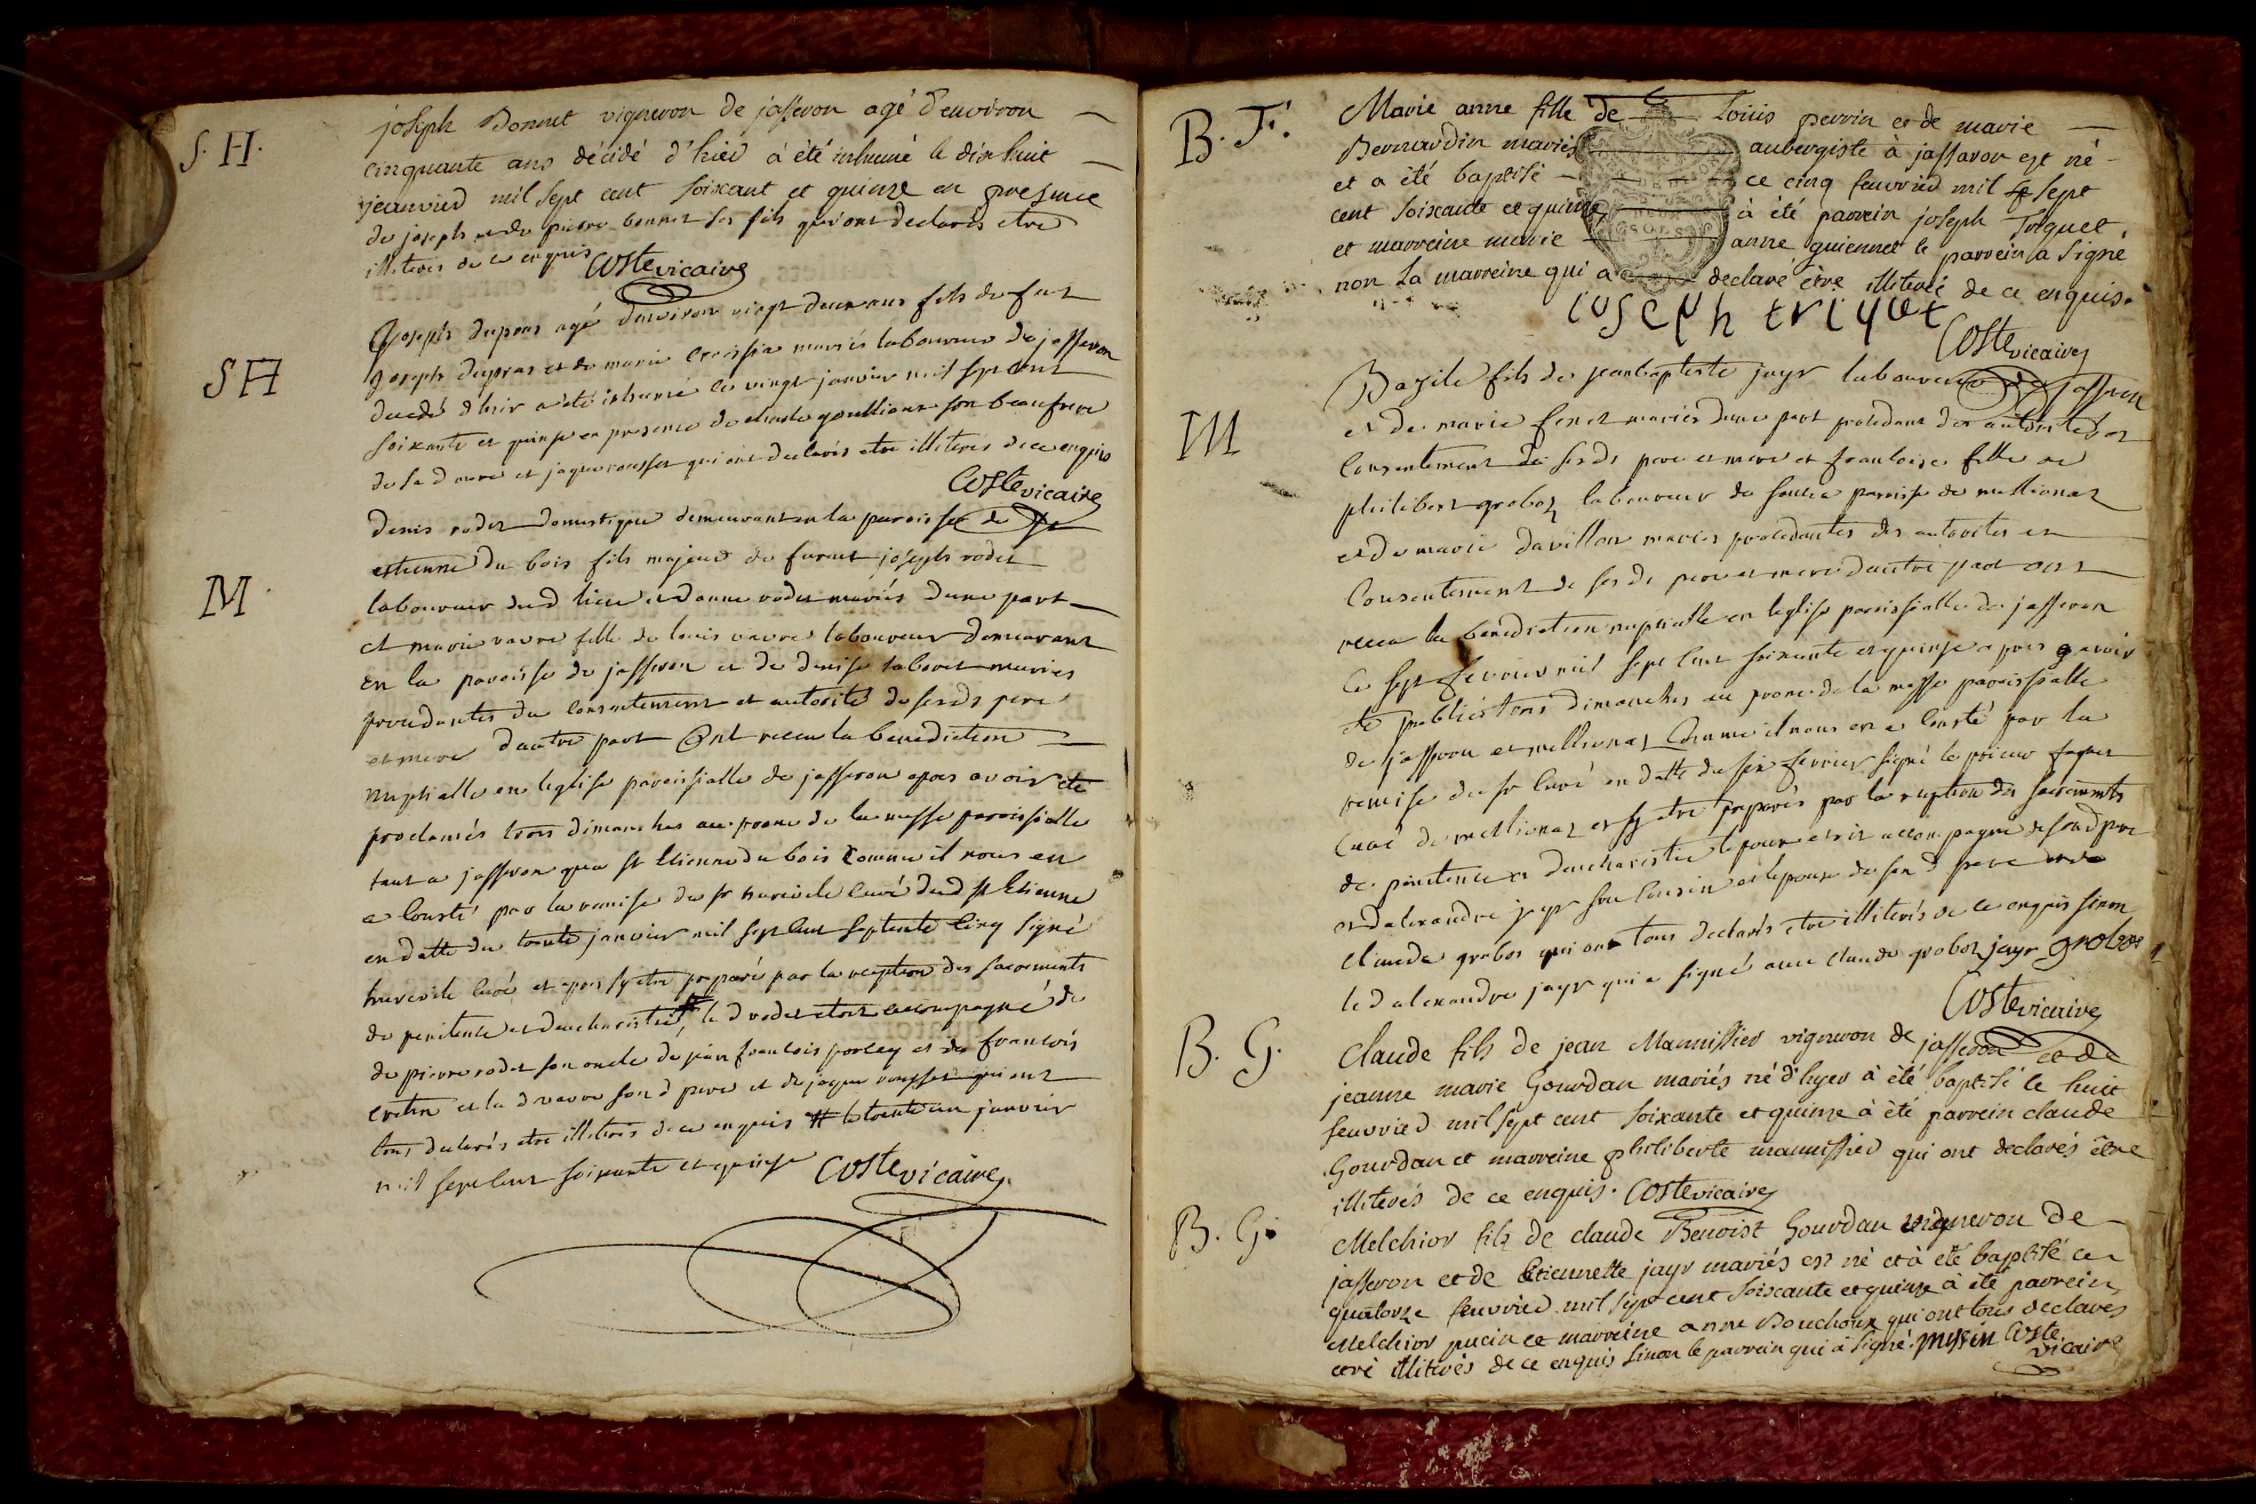 S. H.
joseph Bonnet vigneron de jasseron agé d'environ
cinquante ans décédé d'hier à été inhumé le dix huit
jeanvier mil sept cent soixant et quinze en presence
de joseph et de pierre bonnet ses fils qui ont declarés etre
illiterés de ce enquis
Coste vicaire
S H
joseph dupras agé d'environ vingt deux ans fils de fut
joseph dupras et de marie mariés laboureur de jasseron
decedé d'hier a été inhumé le vingt janvier mil sept cent
soixante et quinse en presence de claude goullioux son beaufrere
de sa d mere et jaque rousset qui ont declarés etre illiterés de ce enquis
Coste vicaire
M
denis rodet domestique demeurant en la paroisse de St
estienne du bois fils majeur de furent joseph rodet
laboureur dud lieu et danne rodet mariés dune part
et marie vavre fille de louis vavre laboureur demeurant
en la paroisse de jasseron et de denise laboret mariés
procedantes du consentement et autorité de sesds pere
et mere dautre part ont receu la benediction
nuptialle en leglise paroissialle de jasseron apres avoir été
proclamés trois dimanches au prone de la messe paroissialle
tant a jasseron qua st Etienne du bois comme il nous en
a consté par la remise du sr curé dud st Etienne
en datte du trente janvier mil sept cent septente cinq signé
curé et apres sy etre preparé par la reception des sacrements
de penitence et deucharistie # le d rodet etoit accompagné de
de pierre rodet son oncle de jean francois et de francois
cretin et la d vavre son d pere et de jaque rousset qui ont
tous declarés etre illiterés de ce enquis # le trente un janvier
mil sept cent soixante et quinse Coste vicaire
B. F.
Marie anne fille de Louis perrin et de marie
Bernardin mariés aubergiste à jasseron est né
et a été baptisé ce cinq feuvrier mil sept
cent soixante et quinze à été parrein joseph Triquet
et marreine marie anne guiennet le parrein a signé
non la marreine qui a declaré être illiteré de ce enquis.
joseph triquet
Coste vicaire
M
Bazile fils de jean baptiste jayr laboureur de jasseron
et de marie feret mariés dune part procedant des autorités et
consentement de sesds pere et mere et francoise fille de
philibert groboz laboureur de paroisse de meillionas
et de marie davillon mariés procedantes des autorités et
consentement de ses ds pere et mere dautre part ont
receu la benediction nuptialle en leglise paroissialle de jasseron
ce sept fevrier mil sept cent soixante et quinse apres avoir
été publiés trois dimanches au prone de la messe paroissialle
de jasseron et meillionas comme il nous en a consté par la
remise du sr curé en datte du six fevrier signé le prieur
curé de meillionas et sy etre preparés par la reception des sacrements
de penitence et deucharistie lepoux etoit accompagné de son d pere
et dalexandre jayr son cousin et lepouse de son d pere et de
claude grobos qui ont tous declarés etre illiterés de ce enquis sinon
le d alexandre jayr qui a signé avec claude grobos jayr grobos
Coste vicaire
B. G.
Claude fils de jean Mannissier vigneron de jasseron et de
jeanne marie Gourdan mariés né d'hyer à été baptisé le huit
feuvrier mil sept cent soixante et quinze à été parrein claude
Gourdan et marreine philiberte mannissier qui ont declarés être
illiterés de ce enquis. Coste vicaire
B. G.
Melchior fils de claude Benoist Gourdan vigneron de
jasseron et de Etiennette jayr mariés est né et à été baptisé ce
quatorze feuvrier mil sept cent soixante et quinze à été parrein
Melchior pucin et marreine anne Bouchoux qui ont tous declarés
etre illiterés de ce enquis sinon le parrein qui à signé. Coste
vicaire